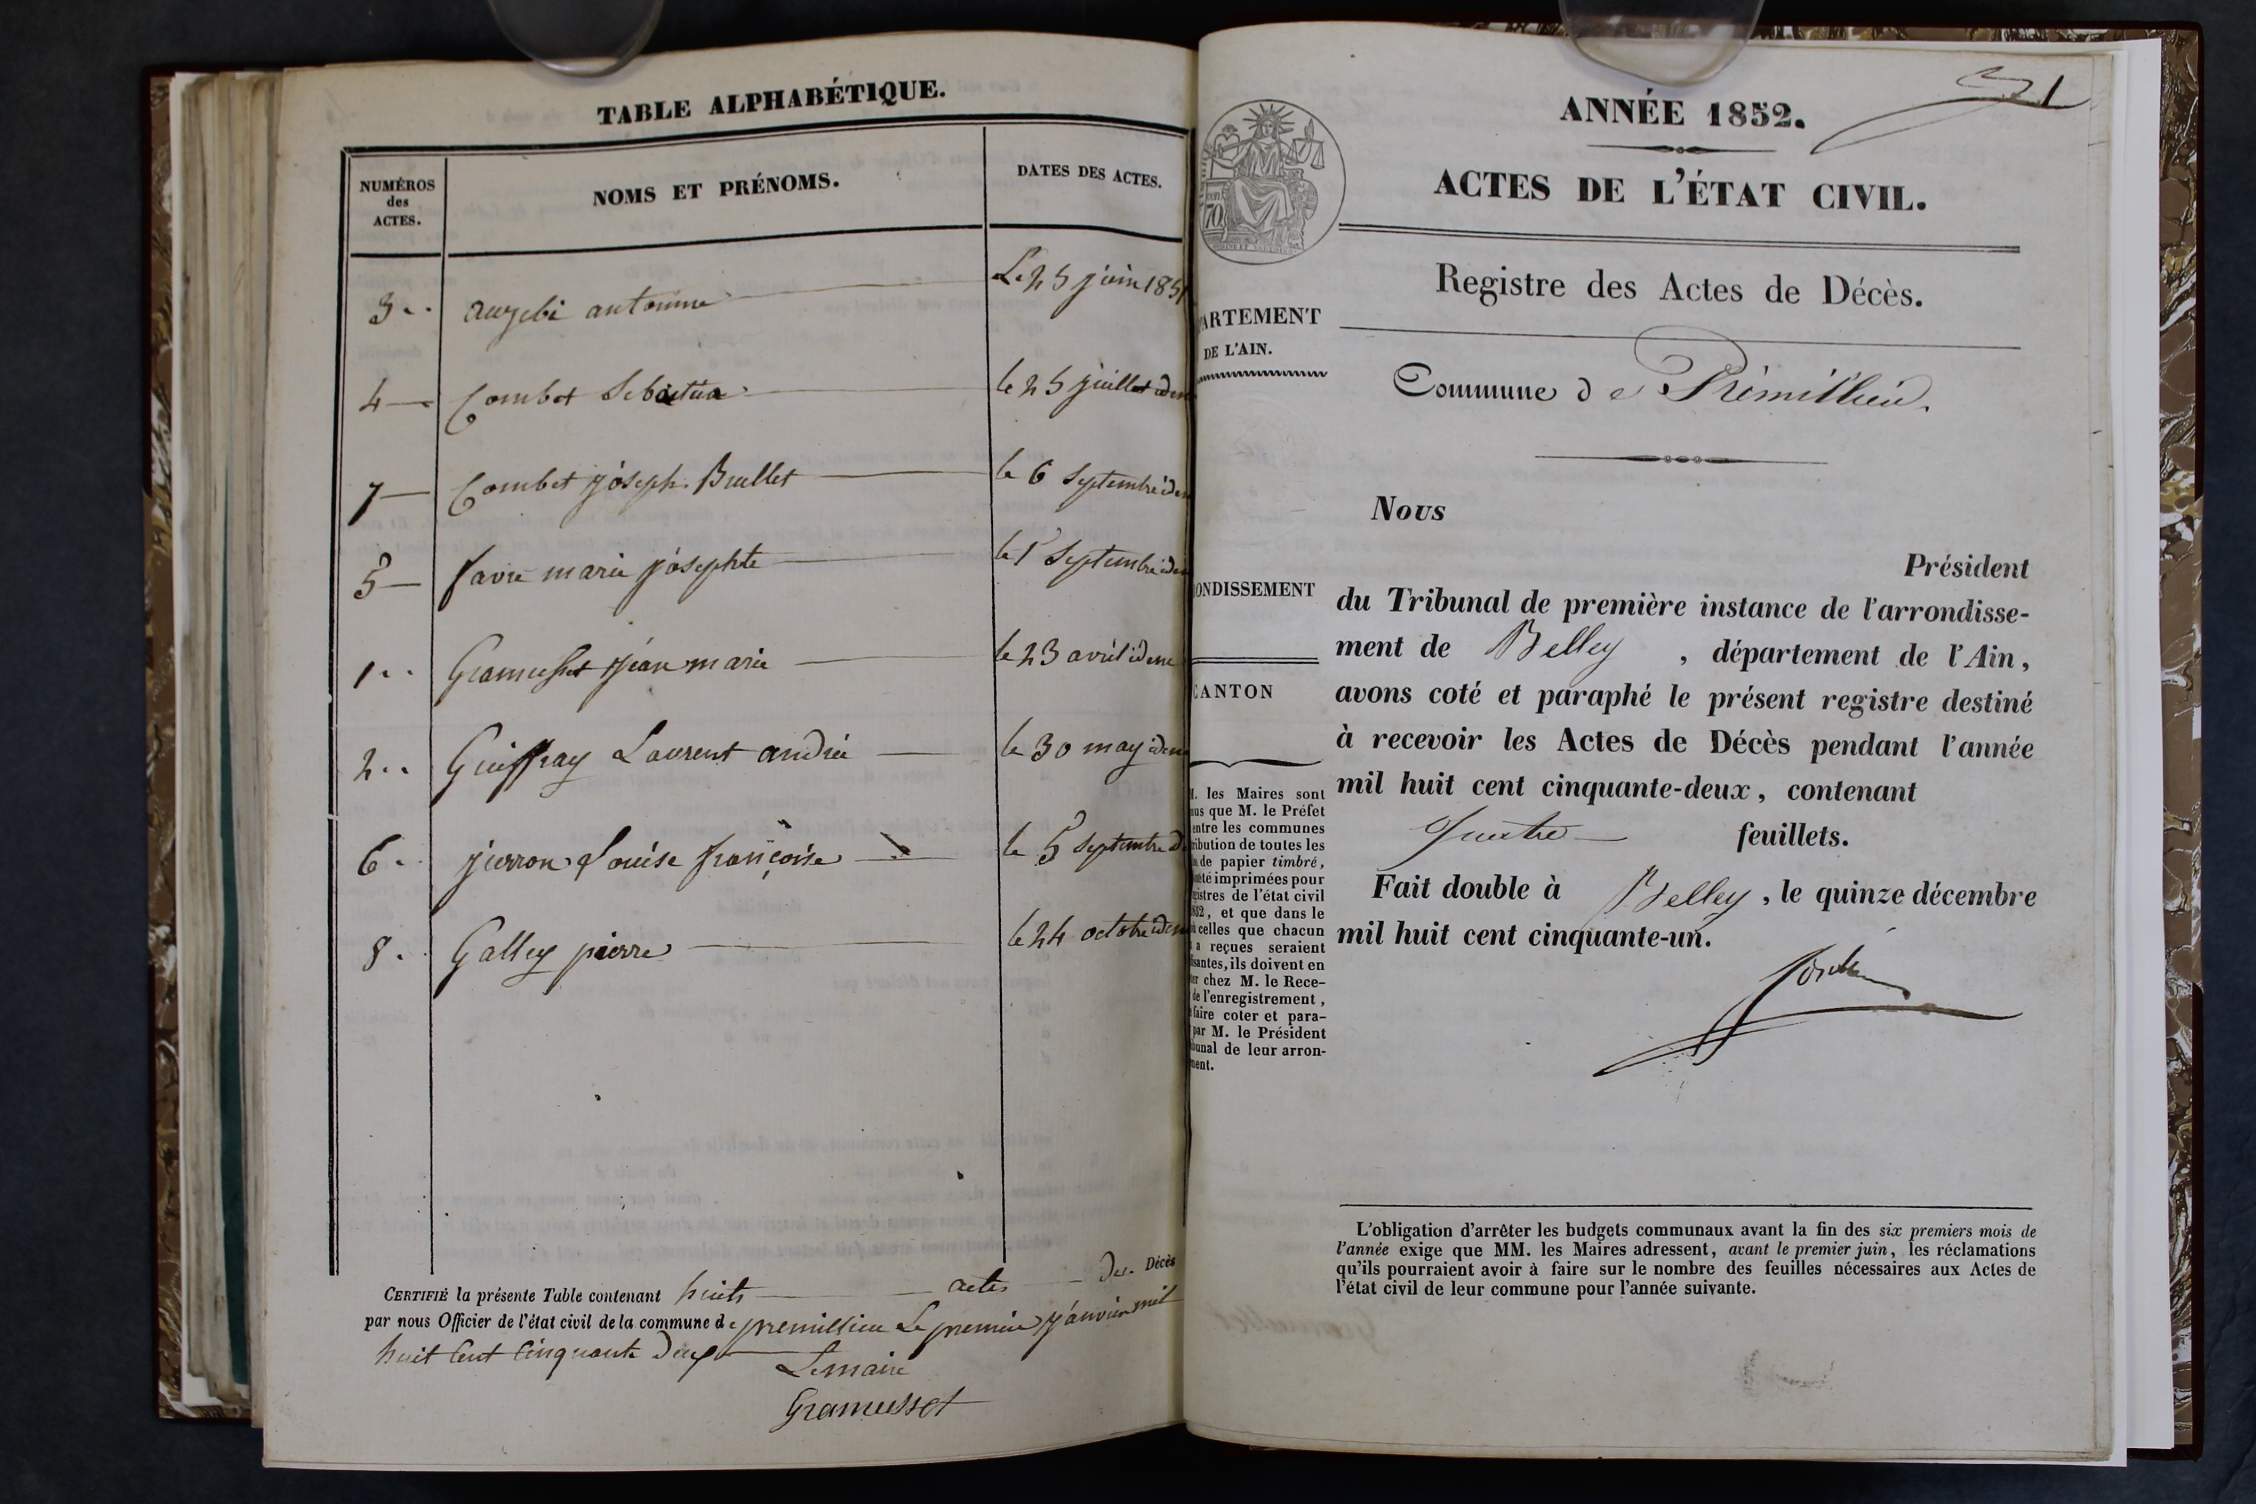 TABLE ALPHABÉTIQUE.
NUMÉROS
des
ACTES.
NOMS ET PRÉNOMS.
DATES DES ACTES.
3 antoine Le 25 juin 1851
4 Combet le 25 juillet idem
7 Combet joseph Brullet le 6 Septembre idem
5 favre marie josephte le 1r Septembre idem
1 Gramusset jean marie le 23 avril idem
2 Guiffray Laurent andré le 30 may idem
6 pierron Louise françoise le 5 Septembre
8 Galley pierre le 24 octobre idem
CERTIFIÉ la présente Table contenant huits actes de Décès
par nous Officier de l'état civil de la commune de premillieu Le premier janvier mil
huit Cent Cinquante deux
Le maire
Gramusset
1
ANNÉE 1852.
ACTES DE L'ÉTAT CIVIL.
Registre des Actes de Décès.
PARTEMENT
DE L'AIN.
Commune de Prémillieu.
Nous
Président
du Tribunal de première instance de l'arrondisse-
ment de Belley, département de l'Ain,
avons coté et paraphé le présent registre destiné
à recevoir les Actes de Décès pendant l'année
mil huit cent cinquante-deux, contenant
quatre feuillets.
Fait double à Belley, le quinze décembre
mil huit cent cinquante-un.
ONDISSEMENT
CANTON
M. les Maires sont
nus que M. le Préfet
entre les communes
ribution de toutes les
de papier timbré,
imprimées pour
gistres de l'état civil
1852, et que dans le
celles que chacun
a reçues seraient
isantes, ils doivent en
ter chez M. le Rece-
de l'enregistrement,
faire coter et para-
par M. le Président
bunal de leur arron-
ment.
L'obligation d'arrêter les budgets communaux avant la fin des six premiers mois de
l'année exige que MM. les Maires adressent, avant le premier juin, les réclamations
qu'ils pourraient avoir à faire sur le nombre des feuilles nécessaires aux Actes de
l'état civil de leur commune pour l'année suivante.